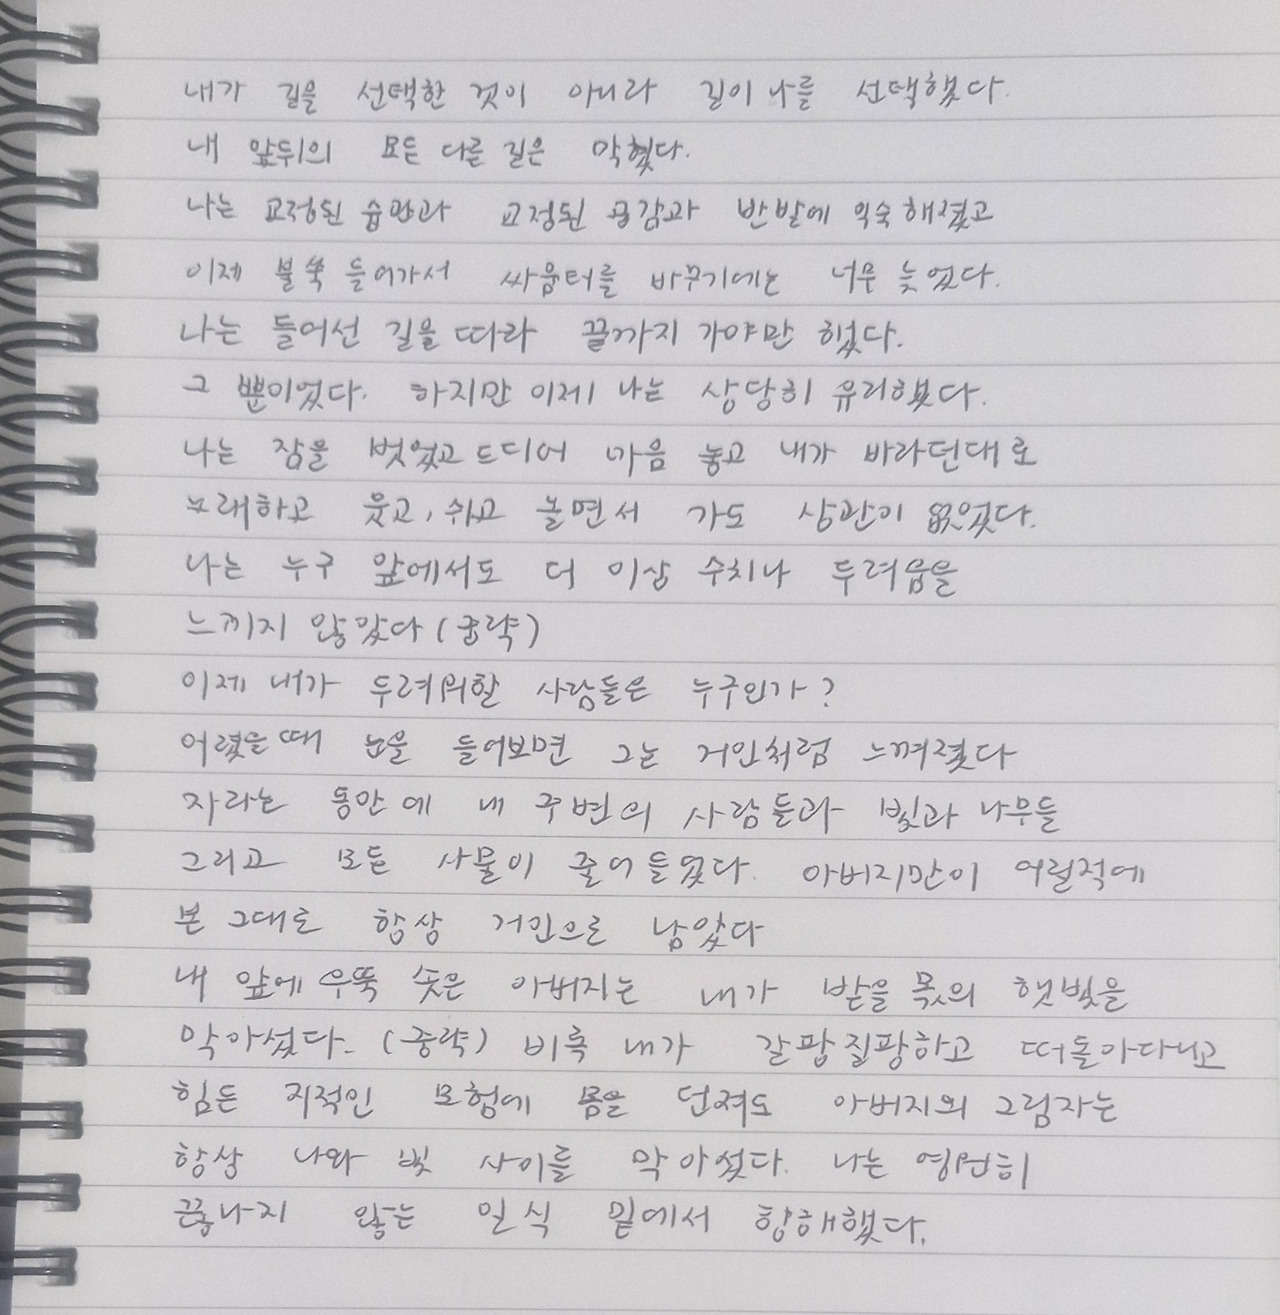 내가 길을 선택한 것이 아니라 길이 나를 선택했다.
내 앞뒤의 모든 다른 길은 막혔다.
나는 교정된 습관과 교정된 공감과 반발에 익숙해졌고
이제 불쑥 들어가서 싸움터를 바꾸기에는 너무 늦었다.
나는 들어선 길을 따라 끝까지 가야만 했다.
그 뿐이었다. 하지만 이제 나는 상당히 유리했다.
나는 짐을 벗었고 드디어 마음 놓고 내가 바라던대로
노래하고 웃고, 쉬고 놀면서 가도 상관이 없었다.
나는 누구 앞에서도 더 이상 수치나 두려움을
느끼지 않았다 (중략)
이제 내가 두려워할 사람들은 누구인가?
어렸을때 눈을 들어보면 그는 거인처럼 느껴졌다
자라는 동안에 내 주변의 사람들과 빛과 나무들
그리고 모든 사물이 줄어들었다. 아버지만이 어릴적에
본 그대로 항상 거인으로 남았다
내 앞에 우뚝 솟은 아버지는 내가 받을 몫의 햇빛을
막아섰다. (중략) 비록 내가 갈팡질팡하고 떠돌아다니고
힘든 지적인 모험에 몸을 던져도 아버지의 그림자는
항상 나와 빛 사이를 막아섰다. 나는 영원히
끝나지 않는 인식 밑에서 항해했다.